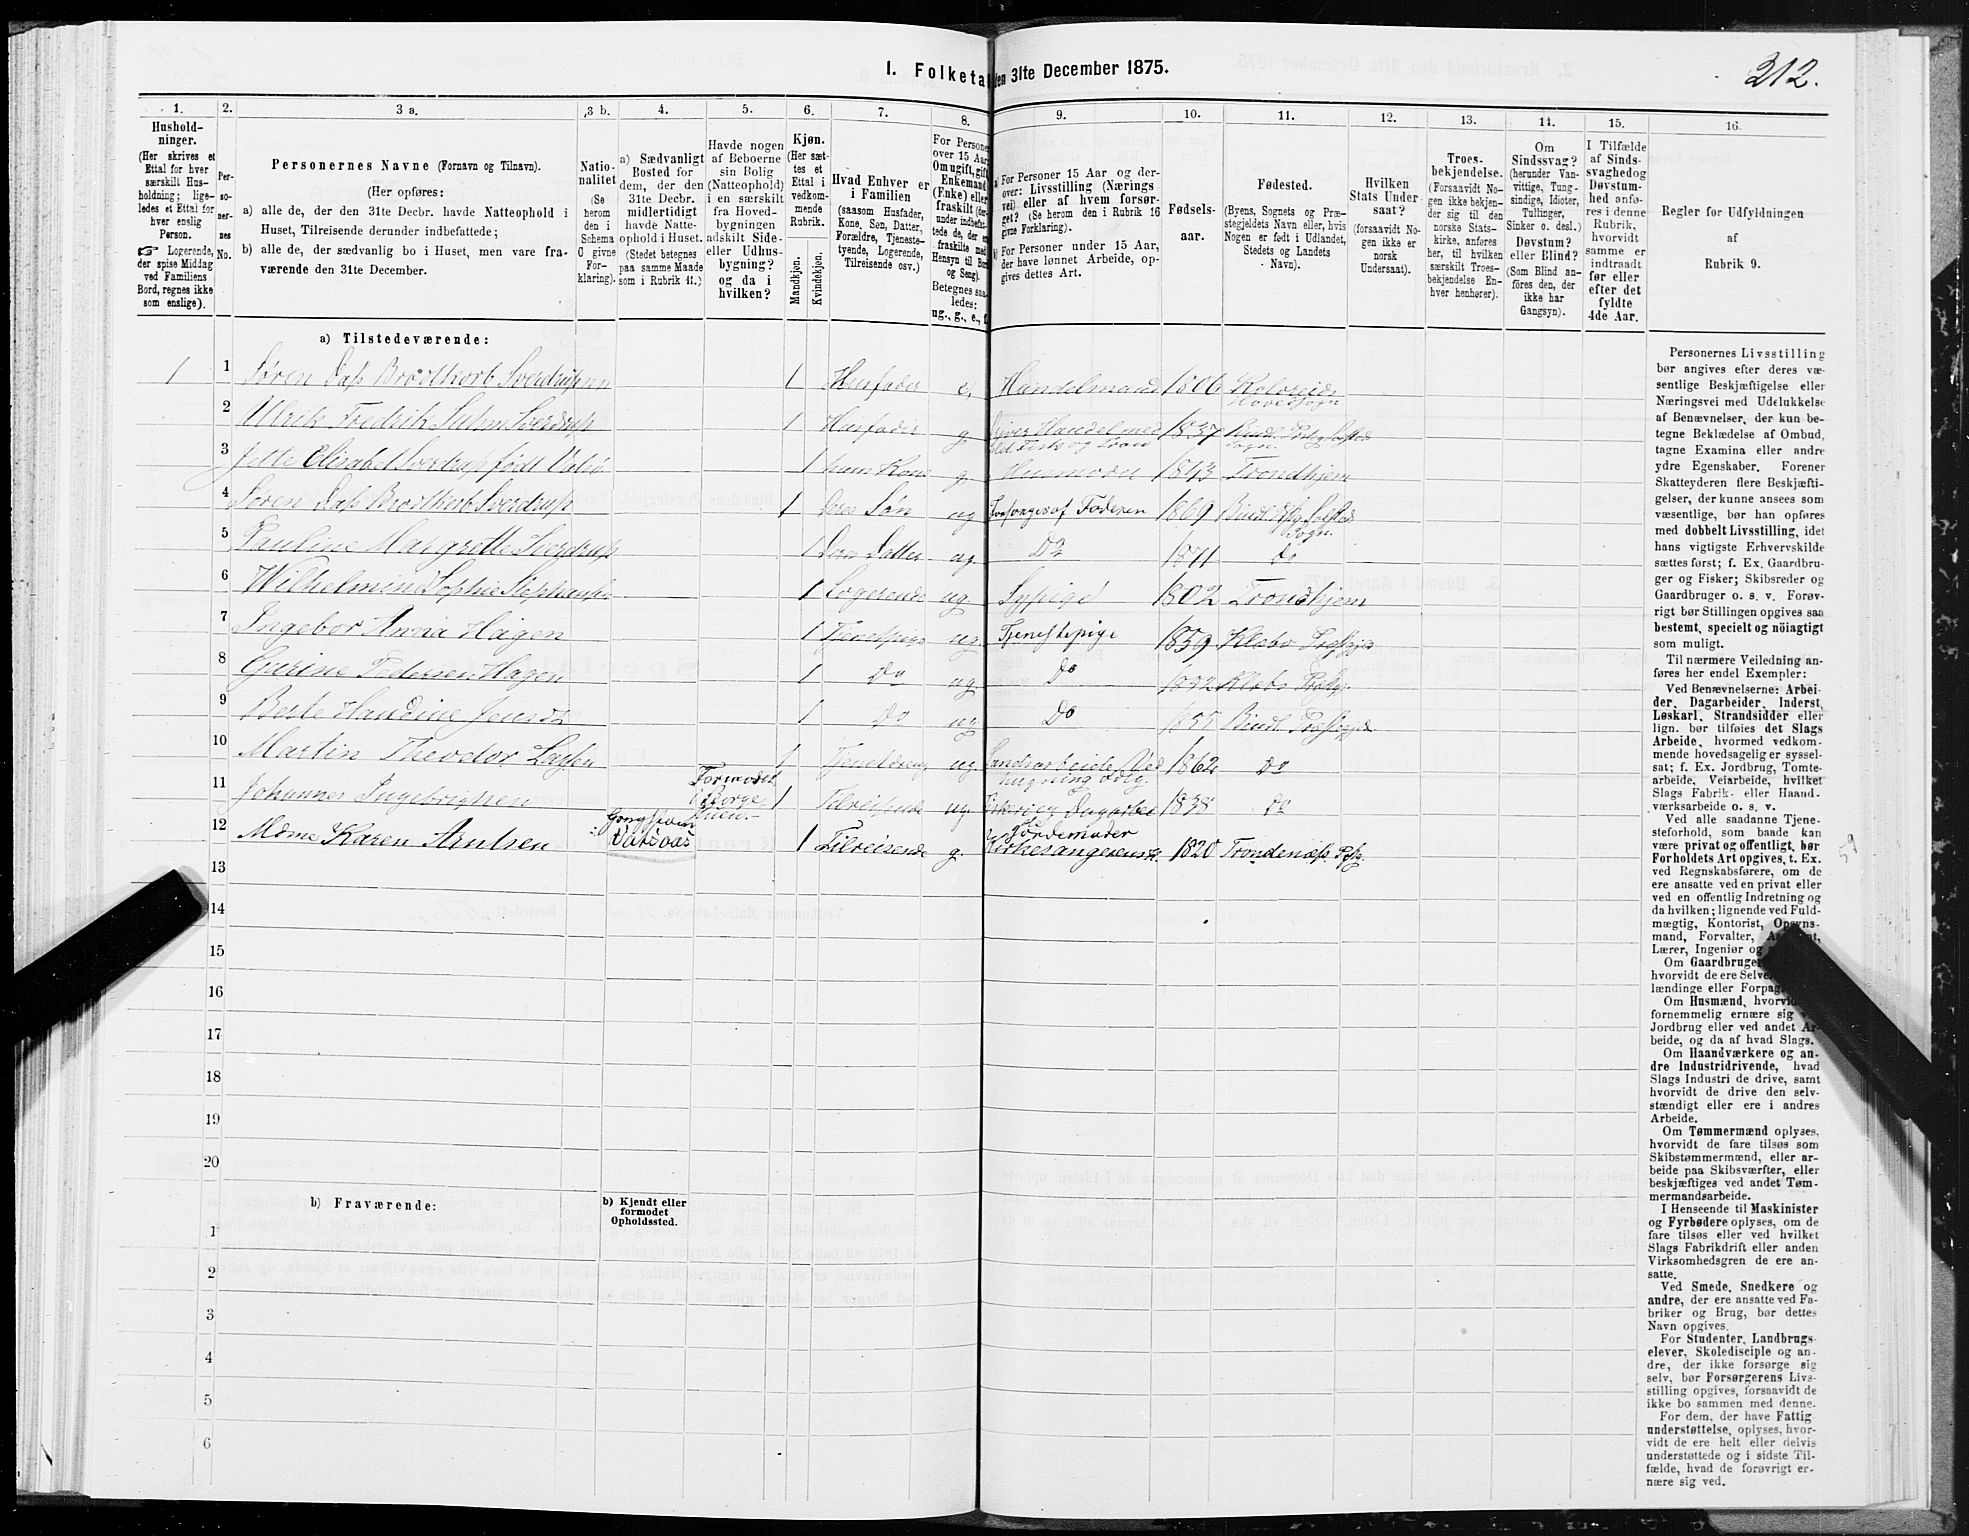 312.
I. Folketal den 31te December 1875.
1. 2. 3 a. 3 b. 4. 5. 6. 7. 8. 9. 10. 11. 12. 13. 14. 15. 16.
Hushold-
ninger.
(Her skrives et
Ettal for hver
særskilt Hus-
holdning; lige-
ledes et Ettal for
hver enslig
Person.
☞ Logerende,
der spise Middag
ved Familiens
Bord, regnes ikke
som enslige).
Per-
so-
ner-
nes
No.
Personernes Navne (Fornavn og Tilnavn).
(Her opføres:
a) alle de, der den 31te Decbr. havde Natteophold i
Huset, Tilreisende derunder indbefattede;
b) alle de, der sædvanlig bo i Huset, men vare fra-
værende den 31te December.
Natio-
nalitet
(Se
herom
den i
Schema
O givne
For-
klaring).
a) Sædvanligt
Bosted for
dem, der den
31te Decbr.
midlertidigt
havde Natte-
ophold i Huset.
(Stedet betegnes
paa samme Maade
som i Rubrik 11.)
Havde nogen
af Beboerne
sin Bolig
(Natteophold)
i en særskilt
fra Hoved-
bygningen
adskilt Side-
eller Udhus-
bygning?
og da i
hvilken?
Kjøn.
(Her sæt-
tes et
Ettal i
vedkom-
mende
Rubrik.
Mandkjøn.
Kvindekjøn.
Hvad Enhver er
i Familien
(saasom Husfader,
Kone, Søn, Datter,
Forældre, Tjeneste-
tyende, Logerende,
Tilreisende osv.)
For Personer
over 15 Aar:
Omugift, gift,
Enkemand
(Enke) eller
fraskilt (der-
under indbefat-
tede de, der er
fraskilte med
Hensyn til Bord
og Seng).
Betegnes saa-
ledes:
ug., g., e., f.
a) For Personer 15 Aar og der-
over: Livsstilling (Nærings-
vei) eller af hvem forsør-
get? (Se herom den i Rubrik 16
givne Forklaring).
b) For Personer under 15 Aar,
der have lønnet Arbeide, op-
gives dettes Art.
Fødsels-
aar.
Fødested.
(Byens, Sognets og Præ-
stegjeldets Navn eller, hvis
Nogen er født i Udlandet,
Stedets og Landets
Navn).
Hvilken
Stats Under-
saat?
(forsaavidt No-
gen ikke er
norsk
Undersaat).
Troes-
bekjendelse.
(Forsaavidt No-
gen ikke bekjen-
der sig til den
norske Stats-
kirke, anføres
her, til hvilken
særskilt Troes-
bekjendelse En-
hver henhører).
Om
Sindssvag?
(herunder Van-
vittige, Tung-
sindige, Idioter,
Tullinger,
Sinker o. desl.)
Døvstum?
eller Blind?
(Som Blind an-
føres den, der
ikke har
Gangsyn).
I Tilfælde
af Sinds-
svaghed og
Døvstum-
hed anfø-
res i denne
Rubrik,
hvorvidt
samme er
indtraadt
før eller
efter det
fyldte
4de Aar.
Regler for Udfyldningen
af
Rubrik 9.
a) Tilstedeværende:
1 1 Søren Dass Brodtkorb Sverdrup 1 Husfader e. Handelmand 1806 Kolvereids
Hovedsogn
2 Ulrik Fredrik Suhm Sverdrup 1 Husfader g. Driver Handel med 1837 Bindl. Prstg. Solstad
Sild Fisk og Tran Sogn
3 Jette Elisabet Sverdrup født 1 hans Kone g Husmoder 1843 Trondhjem
4 Søren Dass Brodtkorb Sverdrup 1 Deres Søn ug Forsørges af Faderen 1869 Bindl. Prstg. Solstad
Sogn.
5 Pauline Margrette Sverdrup 1 Deres Datter ug. Do 1871 Do
6 Wilhelmine Sophie 1 Logerende ug Sypige 1802 Trondhjem
7 Ingebor Anna Haigen 1 Tjenestpige ug. Tjenestepige 1859 Klæbo Prestgjd
8 Gurine Pedersen Hagen 1 Do ug. Do Klæbo Prstgj.
9 Berte Handine 1 Do ug Do 1855 Bindl. Præstgjd.
10 Martin Theodor 1 Tjenestdreng ug 1862 Do
11 Johannes Ingebrigtsen Formodet
i Borge
stuen. 1 Tilreisende ug. 1838 Do
12 Mdme Karen Arntsen 1 Tilreisende g. Jordemoder
1820 Trondenæss Pstg.
13
14
15
16
17
18
19
20
b) Fraværende:
b) Kjendt eller
formodet
Opholdssted.
1
2
3
4
5
6
Personernes Livsstilling
bør angives efter deres væ-
sentlige Beskjæftigelse eller
Næringsvei med Udelukkelse
af Benævnelser, der kun be-
tegne Beklædelse af Ombud,
tagne Examina eller andre
ydre Egenskaber. Forener
Skatteyderen flere Beskjæfti-
gelser, der kunne ansees som
væsentlige, bør han opføres
med dobbelt Livsstilling, idet
hans vigtigste Erhvervskilde
sættes først; f. Ex. Gaardbru-
ger og Fisker; Skibsreder og
Gaardbruger o. s. v. Forøv-
rigt bør Stillingen opgives saa
bestemt, specielt og nøiagtigt
som muligt.
Til nærmere Veiledning an-
føres her endel Exempler:
Ved Benævnelserne: Arbei-
der, Dagarbeider, Inderst,
Løskarl, Strandsidder eller
lign. bør tilføies det Slags
Arbeide, hvormed vedkom-
mende hovedsagelig er syssel-
sat; f. Ex. Jordbrug, Tomte-
arbeide, Veiarbeide, hvilket
Slags Fabrik- eller Haand-
værksarbeide o. s. v.
Ved alle saadanne Tjene-
steforhold, som baade kan
være privat og offentligt, bør
Forholdets Art opgives, t. Ex.
ved Regnskabsførere, om de
ere ansatte ved en privat eller
ved en offentlig Indretning og
da hvilken; lignende ved Fuld-
mægtig, Kontorist, Opsyns-
mand, Forvalter,
Lærer, Ingeniør og
Om Gaardbruger
hvorvidt de ere
lændinge eller
Om Husmænd,
fornemmelig ernære sig
Jordbrug eller ved andet Ar-
beide, og da af hvad Slags.
Om Haandværkere og an-
dre Industridrivende, hvad
Slags Industri de drive, samt
hvorvidt de drive den selv-
stændigt eller ere i andres
Arbeide.
Om Tømmermænd oplyses,
hvorvidt de fare tilsøs som
Skibstømmermænd, eller ar-
beide paa Skibsværfter, eller
beskjæftiges ved andet Tøm-
mermandsarbeide.
I Henseende til Maskinister
og Fyrbødere oplyses, om de
fare tilsøs eller ved hvilket
Slags Fabrikdrift eller anden
Virksomhedsgren de ere an-
satte.
Ved Smede, Snedkere og
andre, der ere ansatte ved Fa-
briker og Brug, bør dettes
Navn opgives.
For Studenter, Landbrugs-
elever, Skoledisciple og an-
dre, der ikke forsørge sig
selv, bør Forsørgerens Livs-
stilling opgives, forsaavidt de
ikke bo sammen med denne.
For dem, der have Fattig
understøttelse, oplyses, hvor-
vidt de ere helt eller delvis
understøttede og i sidste Til-
fælde, hvad de forøvrigt er-
nære sig ved.